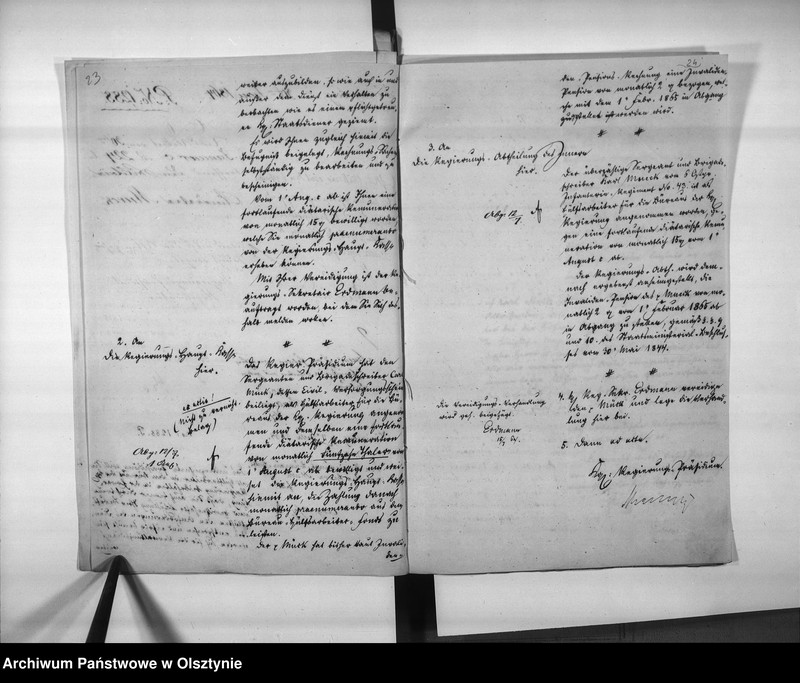 23
weiter auszubilden, so wie auch in und
außer dem Dienst ein Verhalten zu
beobachten wie es einem pflichtgetreu-
en Kgl. Staatsdiener geziemt.
Es wird Ihnen zugleich hiermit die
Befugniß beigelegt, Rechnungs-Sachen
selbstständig zu bearbeiten und zu
bescheinigen.
Vom 1t Aug. c ab ist Ihnen eine
fortlaufende diätarische Remuneration
von monatlich 15 bewilligt worden,
welche Sie monatlich praenumerando
von der Regierungs-Haupt-Kasse
erheben können.
Mit Ihrer Vereidigung ist der Re-
gierungs-Sekretair Erdmann be-
auftragt worden, bei dem Sie Sich des-
halb melden wollen.
2. An
die Regierungs-Haupt-Kasse
hier.
Das Regier. Präsidium hat den
Sergeanten und Brigadeschreiber Carl
Muck, dessen Civil-Versorgungsschein
beiliegt, als Hülfsarbeiter für die Bü-
reaus der Kgl. Regierung angenom-
men und demselben eine fortlau-
fende diätarische Remuneration
von monatlich funfzehn Thaler vom
1t August c ab bewilligt und wei-
set die Regierungs-Haupt-Kasse
hiemit an, die Zahlung danach
monatlich praenumerando aus dem
Bureau-Hülfsarbeiter-Fonds zu
leisten.
Der Muck hat bisher laut Invali-
den-
24
den Pensions-Rechnung eine Invaliden-
Pension von monatlich 2 bezogen, wel-
che mit dem 1t Febr. 1865 in Abgang
gestellt werden wird.
3. An
die Regierungs-Abtheilung des Innern
hier.
Der überzählige Sergeant und Brigade-
schreiber Karl Muck vom
Infanterie-Regiment No. 43 ist als
Hülfsarbeiter für die Bureaus der Kgl.
Regierung angenommen worden, ge-
gen eine fortlaufende diätarische Remu-
neration von monatlich 15 vom 1t
August c ab.
Der Regierungs-Abth. wird dem-
nach ergebenst anheimgestellt, die
Invaliden-Pension des Muck von mo-
natlich 2 vom 1t Februar 1865 ab
in Abgang zu stellen, gemäß §. 8. 9
und 10. des Staatsministerial-Beschlus-
ses vom 30t Mai 1844.
Die Vereidigungs-Verhandlung
wird geh. beigefügt.
Erdmann
4. Reg. Sekr. Erdmann vereidige
den Muck und lege die Verhand-
lung hier bei.
5. Dann ad acta.
Kgl. Regierungs-Präsidium.
Archiwum Państwowe w Olsztynie